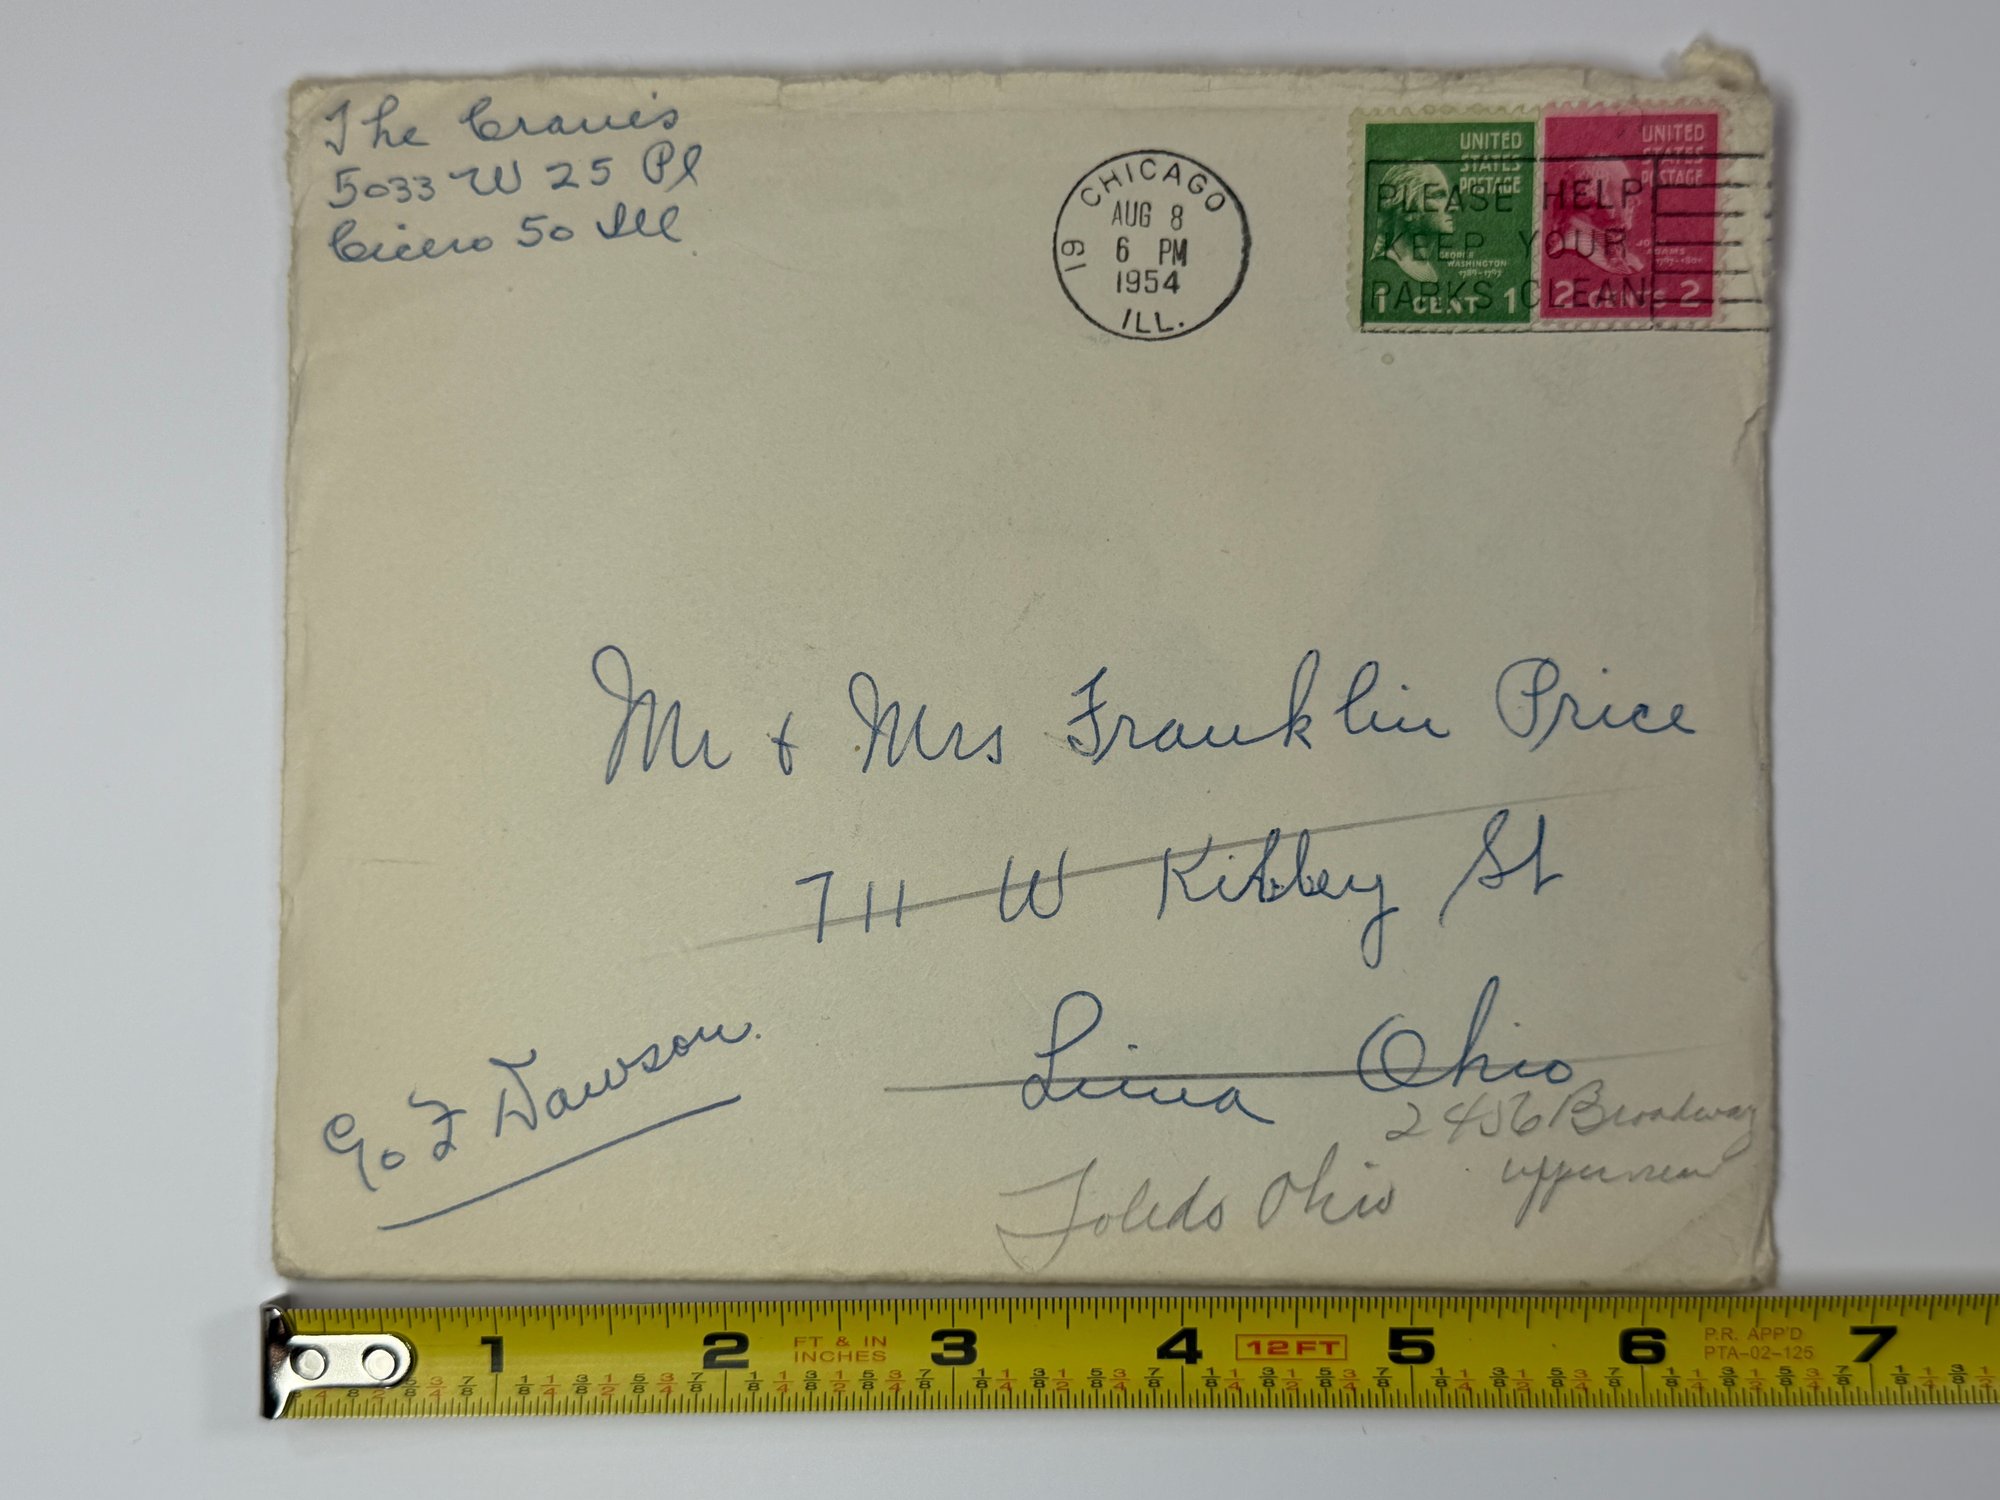 The Cravis
5033 W 25 Pl
Cicero 50 Ill
CHICAGO
AUG 8
6 PM
1954
ILL.
19
PLEASE HELP
KEEP YOUR
PARKS CLEAN
UNITED
STATES
POSTAGE
GEORGE
WASHINGTON
1789-1797
1 CENT 1
UNITED
STATES
POSTAGE
JOHN
ADAMS
1797-1801
2 CENTS 2
Mr & Mrs Franklin Price
711 W Kibby St
Lima Ohio
c/o F Dawson.
2456 Broadway
upper rear
Toledo Ohio
1 2 FT & IN
INCHES 3 4 12FT 5 6 P.R. APP'D
PTA-02-125 7